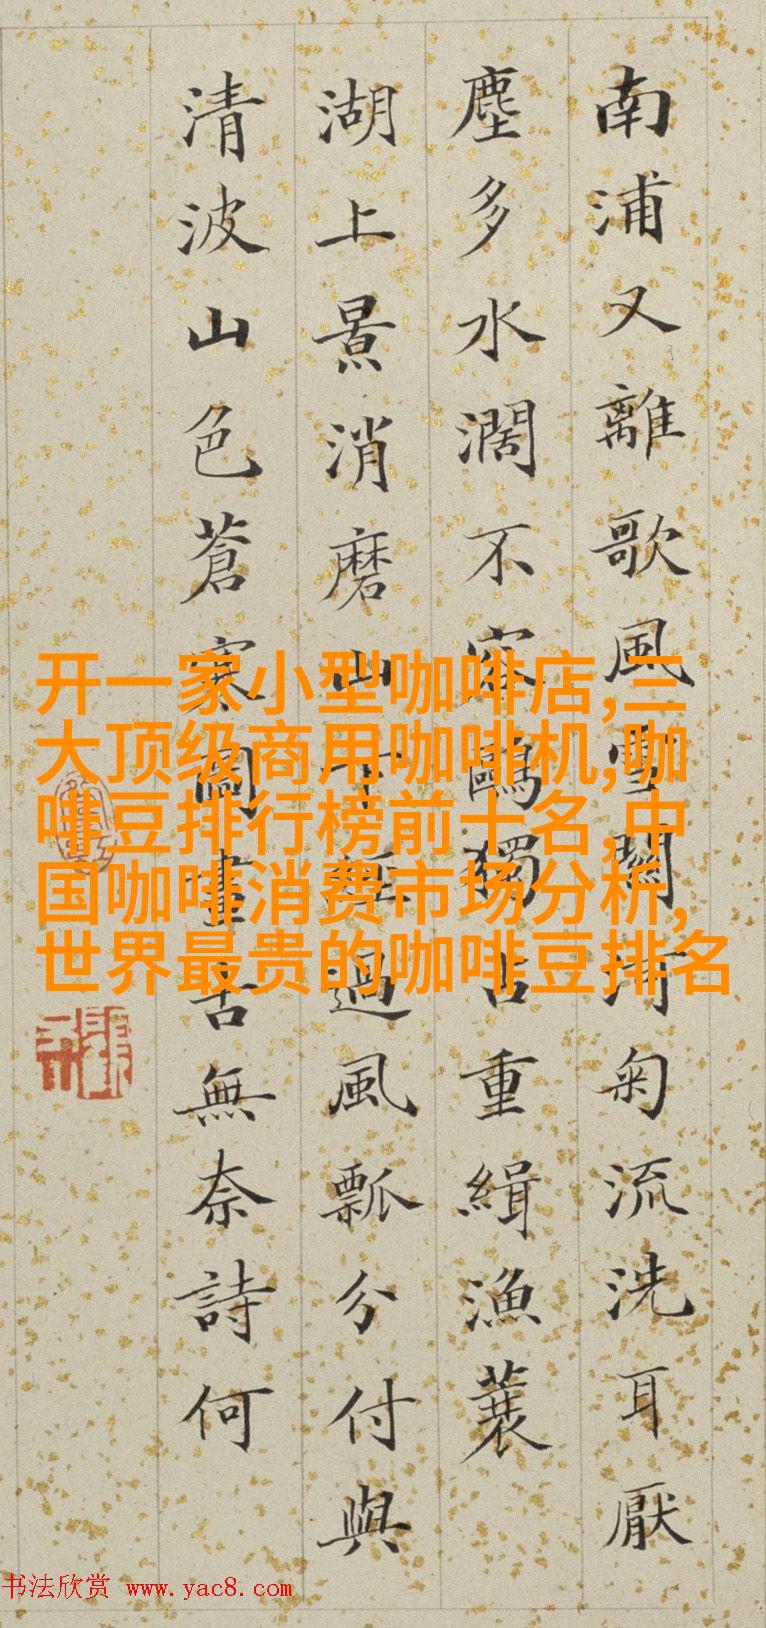 南浦又離歌風雪關河菊流洗耳厭
塵多水濶不容鷗獨占重緝漁蓑
湖上景消磨山過風瓢分付與
清波山色蒼寒圖畫古無奈詩何
开一家小型咖啡店,三
大顶级商用咖啡机,咖
啡豆排行榜前十名,中
国咖啡消费市场分析,
世界最贵的咖啡豆排名
书法欣赏 www.yac8.com